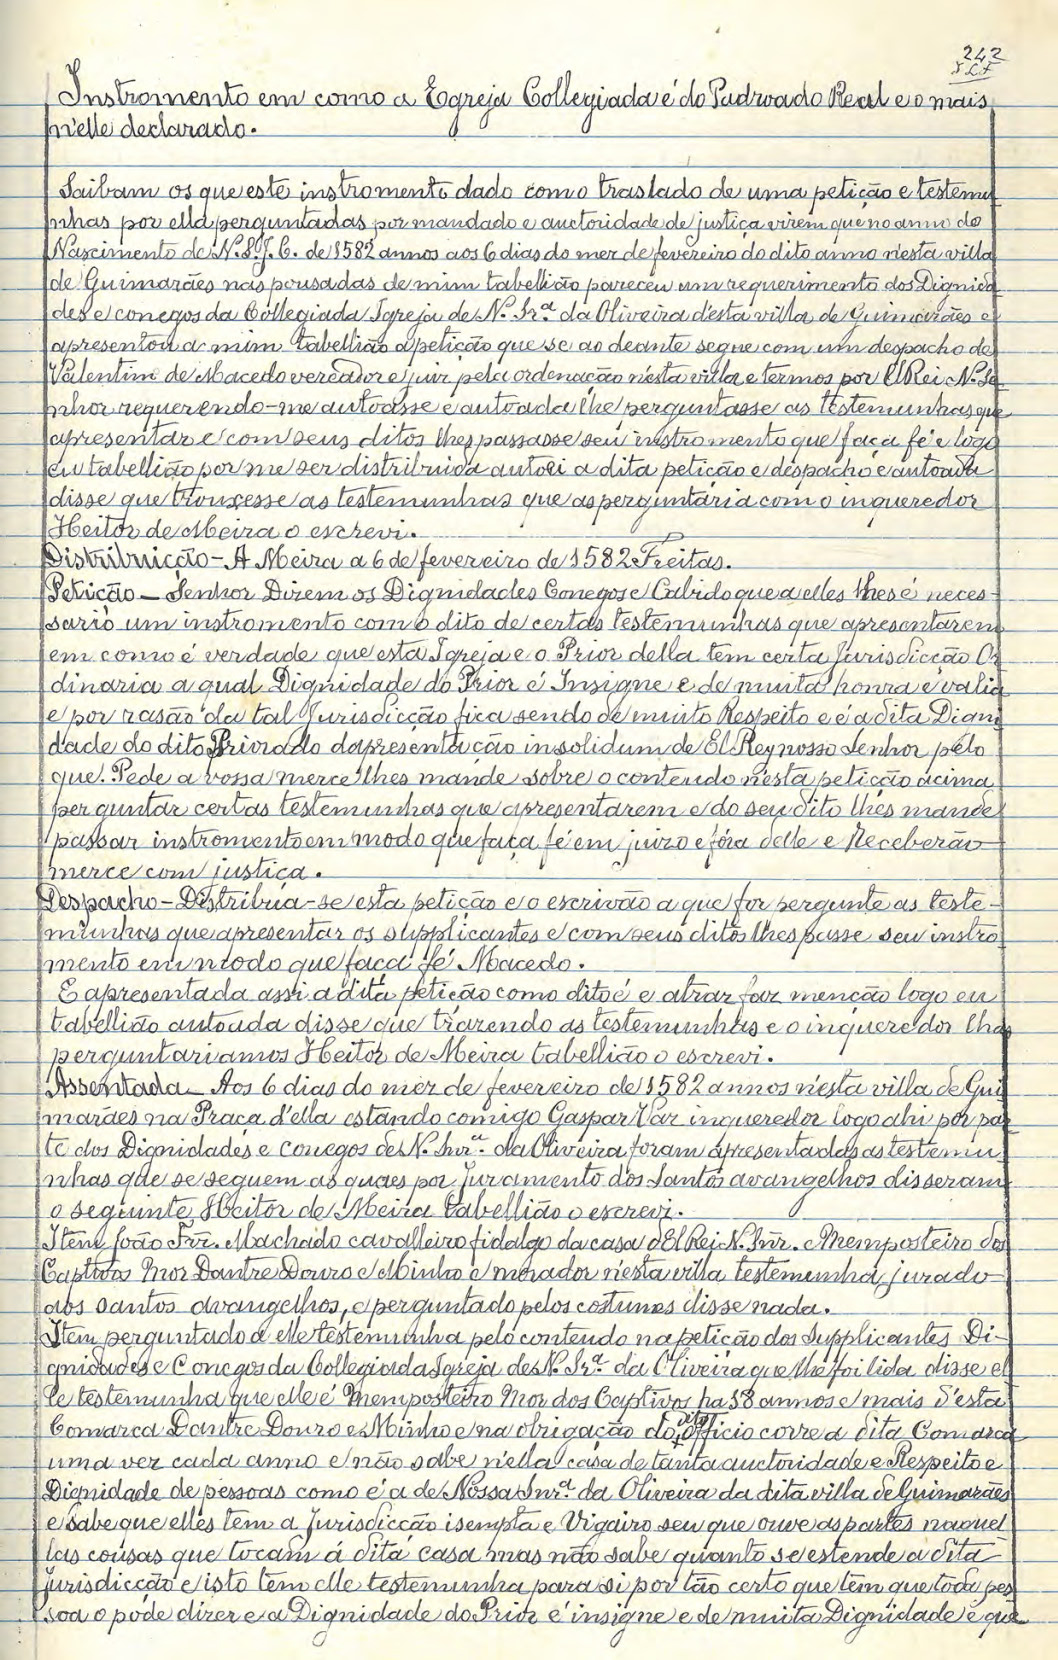 242
Instromento em como a Egreja Collegiada é do Padroado Real e o mais
n'elle declarado.
Saibam os que este instromento dado com o traslado de uma petição e testemu
nhas por ella perguntadas por mandado e auctoridade de justiça virem que no anno do
Nascimento de N. S. J. C. de 1582 annos aos 6 dias do mez de fevereiro do dito anno n'esta villa
de Guimarães nas pousadas de mim tabellião pareceu um requerimento dos Dignida
des e conegos da Collegiada Igreja de N. Sr.ª da Oliveira d'esta villa de Guimarães e
apresentou a mim tabellião a petição que se ao deante segue com um despacho de
Valentim de Macedo vereador e juiz pela ordenação n'esta villa e termos por El Rei N. Se
nhor requerendo-me autoasse e autoada lhe perguntasse as testemunhas que
apresentar e com seus ditos lhes passasse seu instromento que faça fé e logo
eu tabellião por me ser distribuida autoei a dita petição e despacho e autoada
disse que trouxesse as testemunhas que as perguntaria com o inqueredor
Heitor de Meira o escrevi.
Distribuicção - A Meira a 6 de fevereiro de 1582 Freitas.
Petição - Senhor Dizem os Dignidades Conegos e Cabido que a elles lhes é neces-
sario um instromento com o dito de certas testemunhas que apresentarem
em como é verdade que esta Igreja e o Prior della tem certa Jurisdicção Or
dinaria a qual Dignidade do Prior é Insigne e de muita honra e valia
e por rasão da tal Jurisdicção fica sendo de muito Respeito e é a dita Digni
dade do dito Priorado d'apresentação insolidum de El Rey nosso Senhor pelo
que. Pede a vossa merce lhes mande sobre o conteudo n'esta petição acima
perguntar certas testemunhas que apresentarem e do seu dito lhes mande
passar instromento em modo que faça fé em juizo e fóra delle e Receberão
merce com justiça.
Despacho - Distribua-se esta petição e o escrivão a que for pergunte as teste-
munhas que apresentar os supplicantes e com seus ditos lhes passe seu instro
mento em modo que faça fé Macedo.
E apresentada assi a dita petição como dito é e atraz faz menção logo eu
tabellião autoada disse que trazendo as testemunhas e o inqueredor lhas
perguntariamos Heitor de Meira tabellião o escrevi.
Assentada - Aos 6 dias do mez de fevereiro de 1582 annos n'esta villa de Gui
marães na Praça d'ella estando comigo Gaspar Vaz inqueredor logo ahi por par
te dos Dignidades e conegos de N. Snr.ª da Oliveira foram apresentadas as testemu
nhas que se seguem as quaes por Juramento dos Santos avangelhos disseram
o seguinte Heitor de Meira tabellião o escrevi.
Item João Frz. Machado cavalleiro fidalgo da casa d'El Rei N. Snr. e Memposteiro dos
Captivos Mor Dantre Douro e Minho e morador n'esta villa testemunha jurado
aos santos avangelhos, e perguntado pelos costumes disse nada.
Item perguntado a elle testemunha pelo conteudo na petição dos Supplicantes Di-
gnidades e Conegos da Collegiada Igreja de N. Sr.ª da Oliveira que lhe foi lida disse el
le testemunha que elle é Memposteiro Mor dos Captivos ha 18 annos e mais d'esta
Comarca Dantre Douro e Minho e na obrigação do dito officio corre a dita Comarca
uma vez cada anno e não sabe n'ella casa de tanta auctoridade e Respeito e
Dignidade de pessoas como é a de Nossa Snr.ª da Oliveira da dita villa de Guimarães
e sabe que elles tem a Jurisdicção isempta e Vigairo seu que ouve as partes naquel
las cousas que tocam á dita casa mas não sabe quanto se estende a dita
jurisdicção e isto tem elle testemunha para si por tão certo que tem que toda pes
soa o póde dizer e a Dignidade do Prior é insigne e de muita Dignidade e que